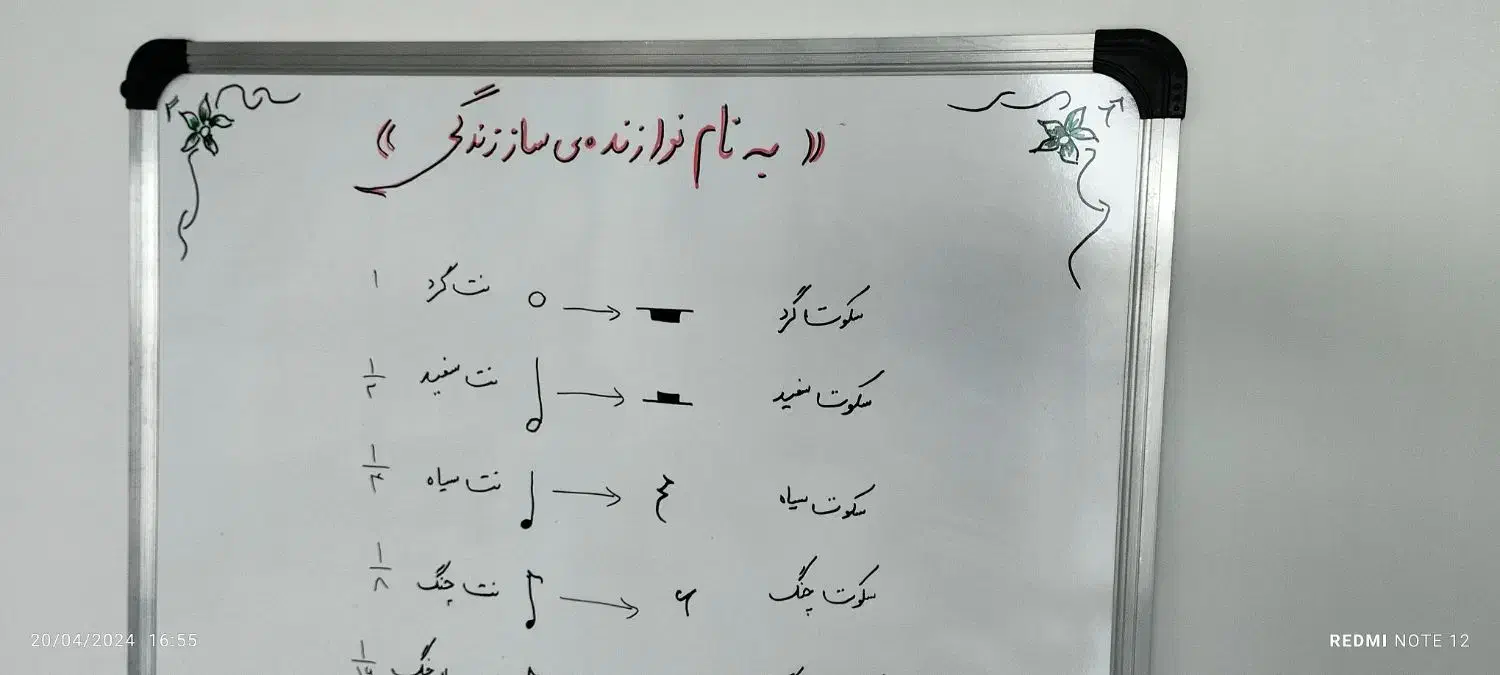 « به نام نوازنده‌ی ساز زندگی »
سکوت گرد → نت گرد ۱
سکوت سفید → نت سفید ۱/۲
سکوت سیاه → نت سیاه ۱/۴
سکوت چنگ → نت چنگ ۱/۸
چنگ ۱/۱۶
20/04/2024 16:55
REDMI NOTE 12